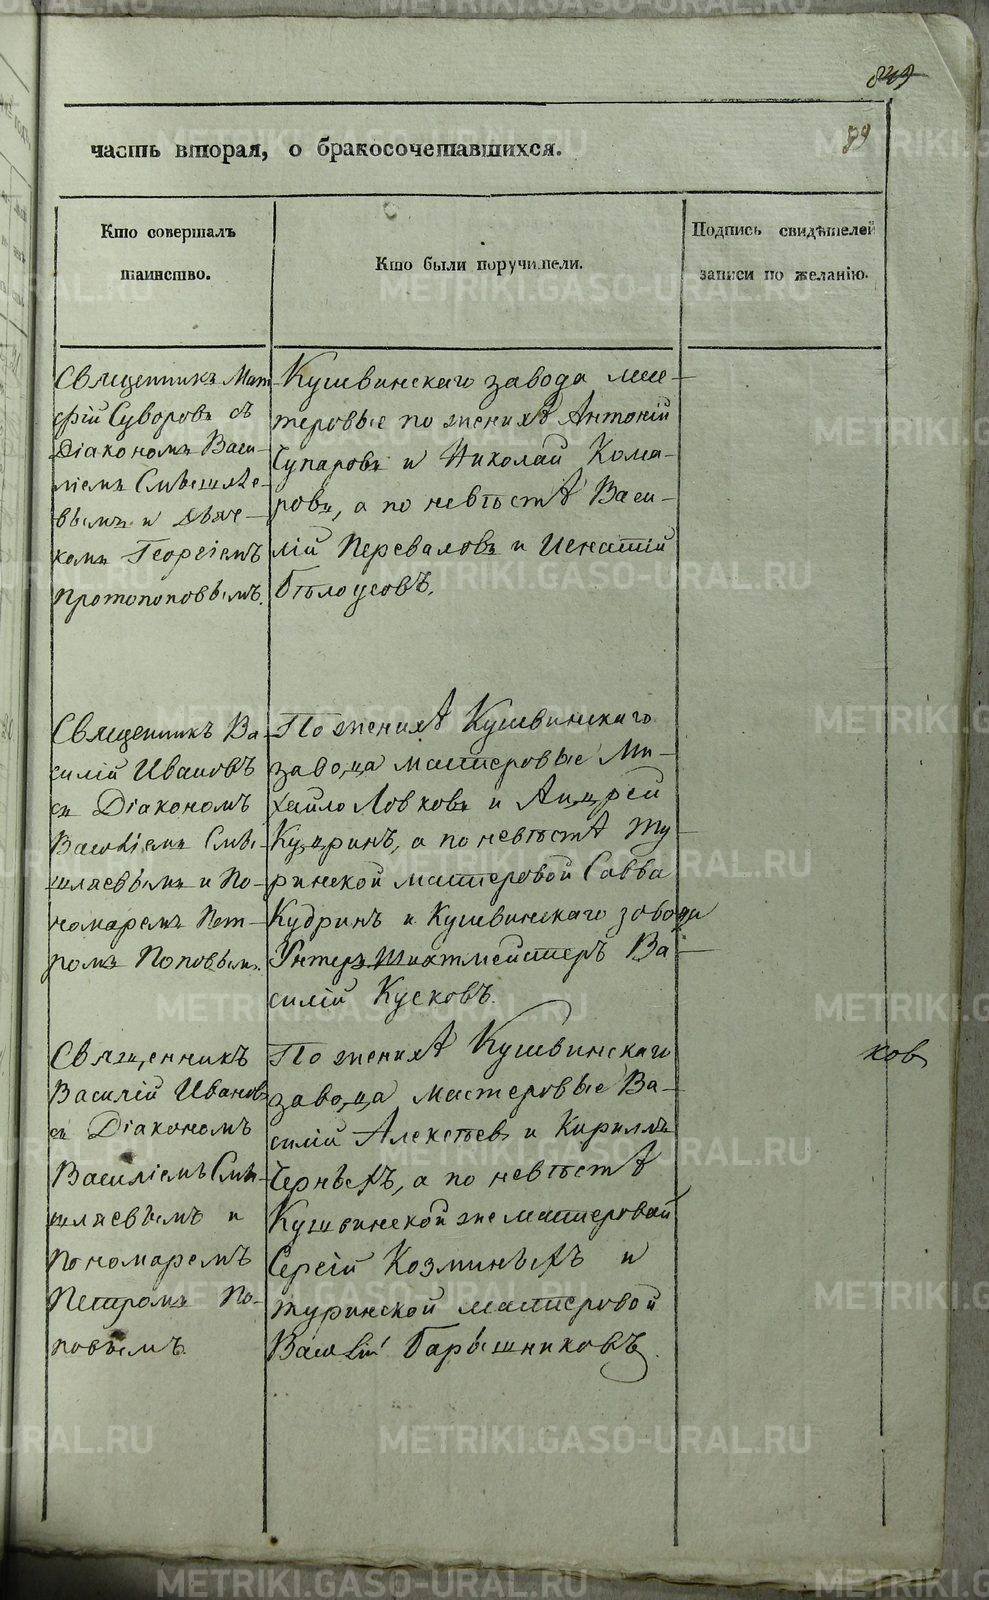 849
89
часть вторая, о бракосочетавшихся.
Кто совершалъ
таинство.
Кто были поручители.
Подпись свидѣтелей
записи по желанію.
Священникъ Мат-
фій Суворовъ съ
Діакономъ Васи-
ліемъ Смышляе-
вымъ и Дьяч-
комъ Георгіемъ
Протопоповымъ.
Кушвинскаго завода мас-
теровые по женихѣ Антоній
Супаровъ и Николай Кома-
ровъ, а по невѣстѣ Васи-
лій Переваловъ и Игнатій
Бѣлоусовъ.
Священникъ Ва-
силій Ивановъ
съ Діакономъ
Василіемъ Смы-
шляевымъ и По-
номаремъ Пет-
ромъ Поповымъ.
По женихѣ Кушвинскаго
завода мастеровые Ми-
хайло Ловковъ и Андрей
Кудринъ, а по невѣстѣ Ту-
ринской мастеровой Савва
Кудринъ и Кушвинскаго завода
Унтеръ Шихтмейстеръ Ва-
силій Кусковъ.
Священникъ
Василій Ивановъ
съ Діакономъ
Василіемъ Смы-
шляевымъ и
Пономаремъ
Петромъ По-
повымъ
По женихѣ Кушвинскаго
завода мастеровые Ва-
силій Алексѣевъ и Кириллъ
Черныхъ, а по невѣстѣ
Кушвинской же мастеровой
Сергій Козминыхъ и
туринской мастеровой
Василій Барышниковъ.
ковъ
METRIKI.GASO-URAL.RU